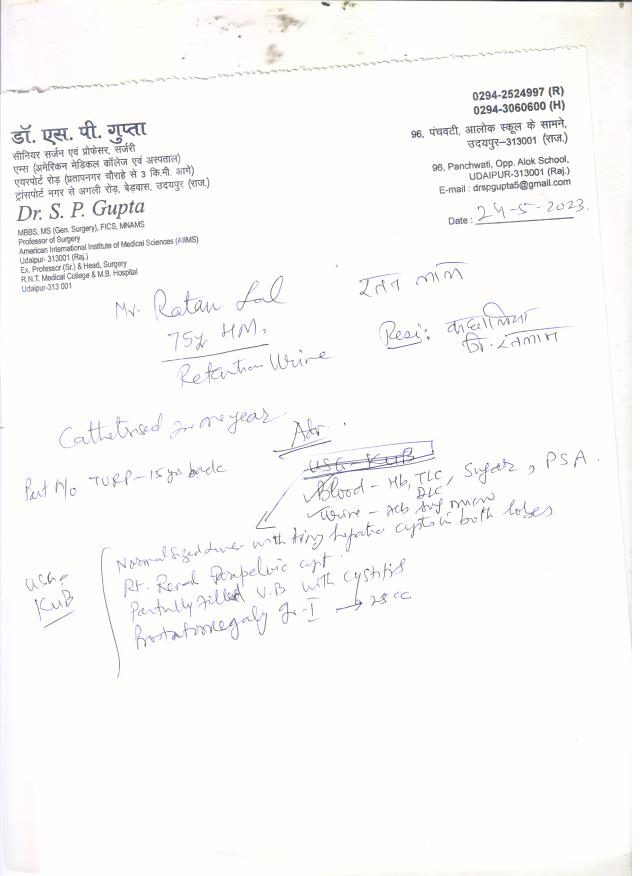 0294-2524997 (R)
0294-3060600 (H)
डॉ. एस. पी. गुप्ता
सीनियर सर्जन एवं प्रोफेसर, सर्जरी
एम्स (अमेरिकन मेडिकल कॉलेज एवं अस्पताल)
एयरपोर्ट रोड़ (प्रतापनगर चौराहे से 3 कि.मी. आगे)
ट्रांसपोर्ट नगर से अगली रोड़, बेड़वास, उदयपुर (राज.)
Dr. S. P. Gupta
MBBS, MS (Gen. Surgery), FICS, MNAMS
Professor of Surgery
American International Institute of Medical Sciences (AIIMS)
Udaipur- 313001 (Raj.)
Ex. Professor (Sr.) & Head, Surgery
R.N.T. Medical College & M.B. Hospital
Udaipur-313 001
96, पंचवटी, आलोक स्कूल के सामने,
उदयपुर–313001 (राज.)
96, Panchwati, Opp. Alok School,
UDAIPUR-313001 (Raj.)
E-mail : drspgupta5@gmail.com
Date : 24-5-2023.
Mr. Ratan Lal
रतन लाल
75y HM,
Resi:
जि. रतलाम
Retention Urine
Cathetrised for one year.
Adv.
Past H/o TURP - 15 yrs back
USG - KUB
Blood - Hb, TLC, DLC, Sugar, PSA.
Urine - Alb Sug micro
USG-
KUB
Normal sized Liver with tiny hepatic cysts in both lobes
Rt. Renal Parapelvic cyst
Partially filled U.B with cystitis
Prostatomegaly Gr-I → 28 cc